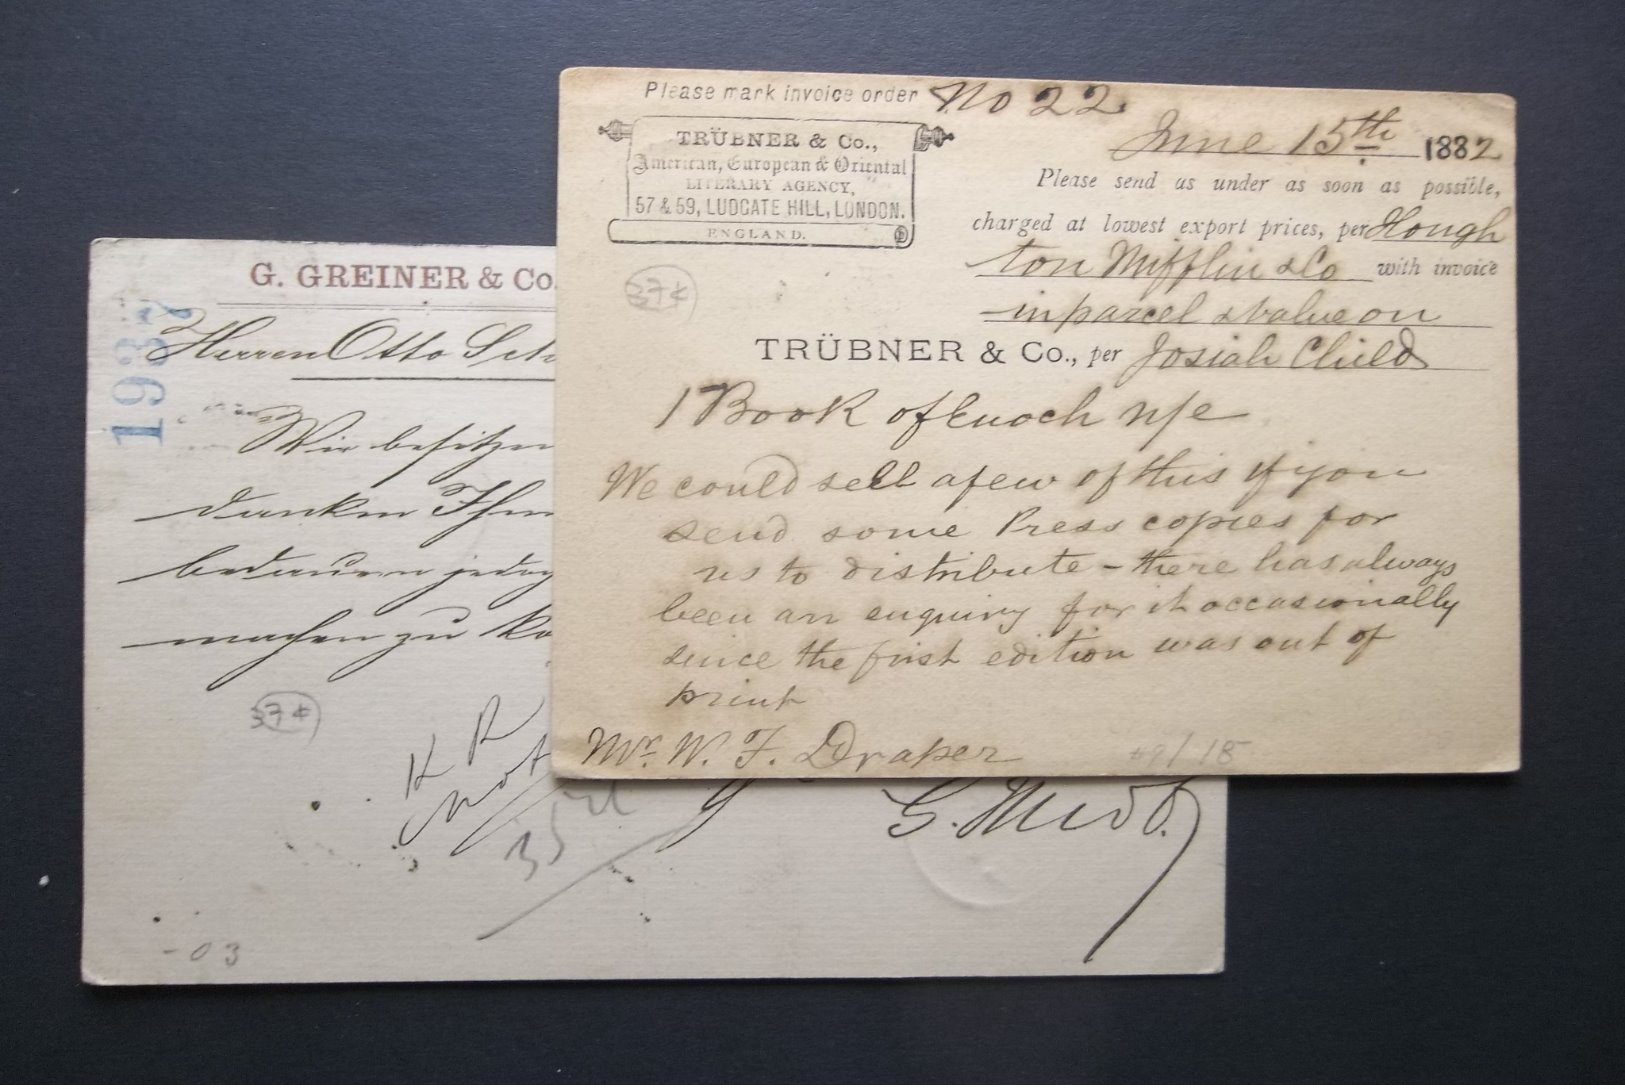 Please mark invoice order No 22.
TRÜBNER & Co.,
American, European & Oriental
LITERARY AGENCY,
57 & 59, LUDGATE HILL, LONDON.
ENGLAND.
June 15th 1882
Please send us under as soon as possible,
charged at lowest export prices, per Hough
ton Mifflin & Co with invoice
in parcel & value on
TRÜBNER & Co., per Josiah Child
1 Book of Enoch n/e
We could sell a few of this if you
send some Press copies for
us to distribute - there has always
been an enquiry for it occasionally
since the first edition was out of
print
Mr. W. F. Draper
37¢
G. GREINER & Co.
1937
Herren Otto
Wir besitzen
danken Ihnen
bedauern
machen zu
37¢
-03